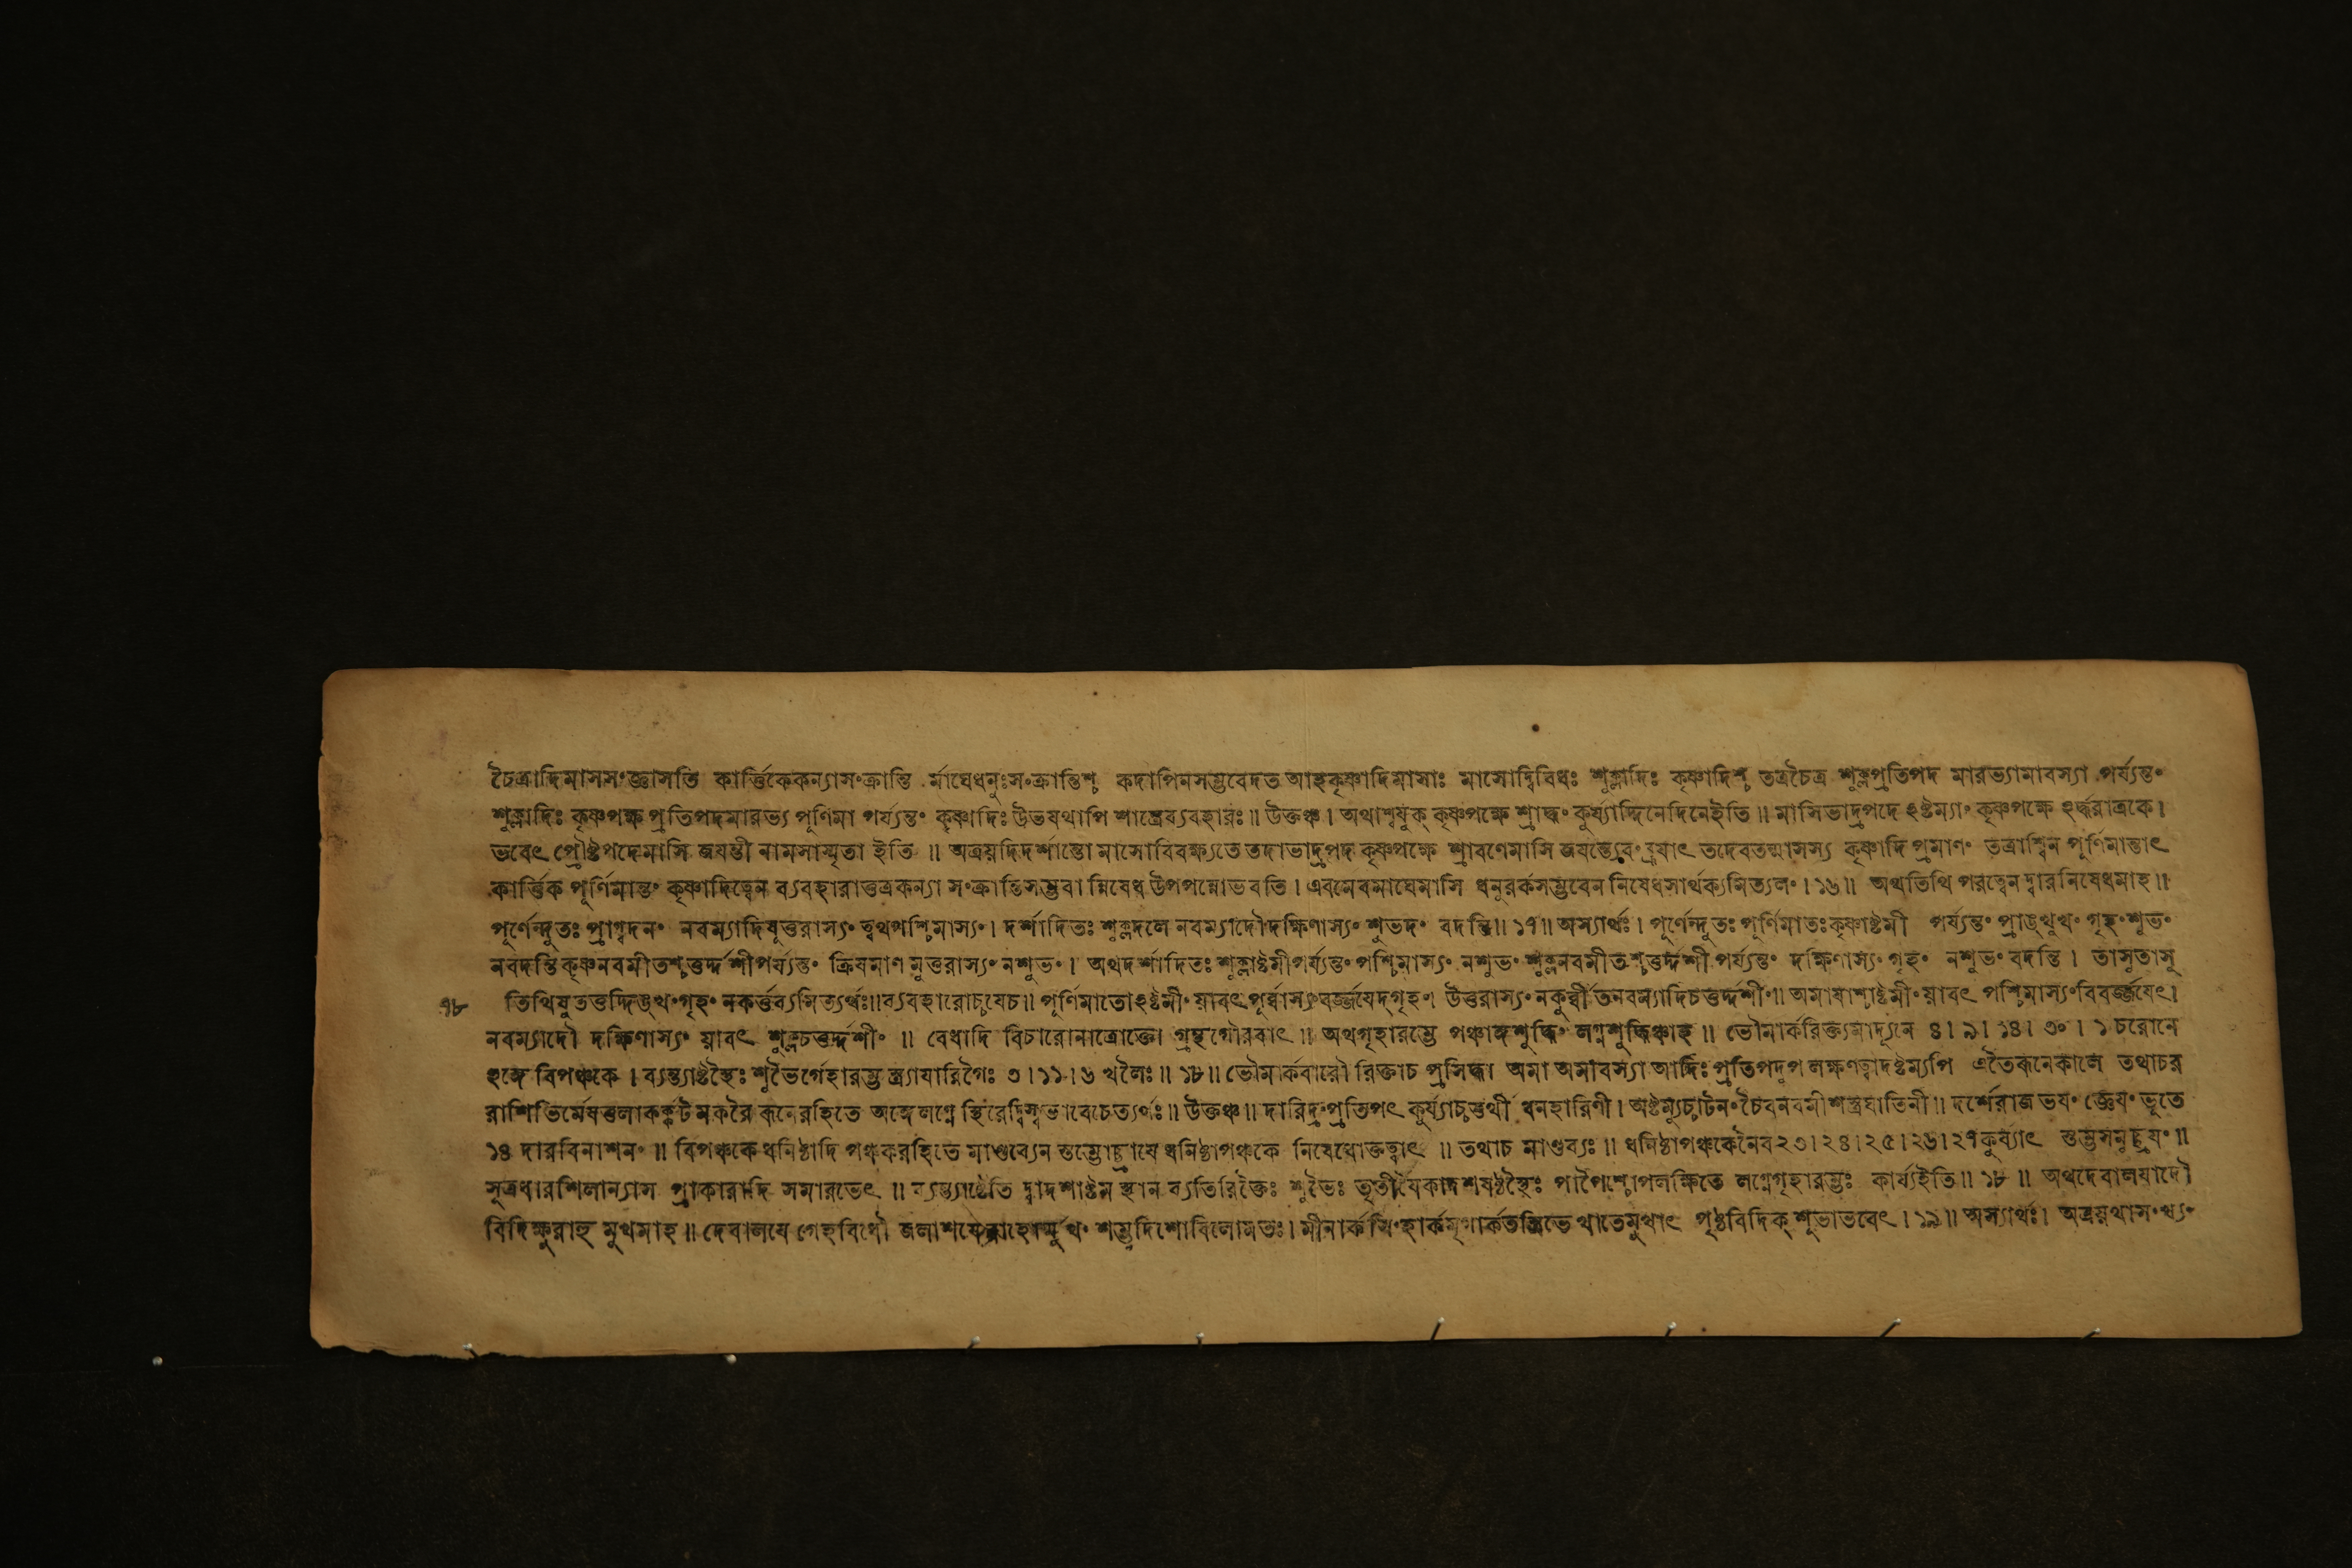 চৈত্রাদিমাসসংজ্ঞাসতি কার্ত্তিকেকন্যাসংক্রান্তি র্মাঘেধনুঃসংক্রান্তিশ্চ কদাপিনসম্ভবেদত আহকৃষ্ণাদিমাসাঃ মাসোদ্বিবিধঃ শুক্লাদিঃ কৃষ্ণাদিশ্চ তত্রচৈত্র শুক্লপ্রতিপদ মারভ্যামাবস্যা পর্য্যন্তং
শুক্লাদিঃ কৃষ্ণপক্ষ প্রতিপদমারভ্য পূর্ণিমা পর্য্যন্তং কৃষ্ণাদিঃ উভযথাপি শাস্ত্রেব্যবহারঃ॥ উক্তঞ্চ। অথাশ্বযুক্ কৃষ্ণপক্ষে শ্রাদ্ধং কুর্য্যাদ্দিনেদিনেইতি॥ মাসিভাদ্রপদে ঽষ্টম্যাং কৃষ্ণপক্ষে ঽর্দ্ধরাত্রকে।
ভবেৎ প্রৌষ্টপদেমাসি জযন্তী নামসাস্মৃতা ইতি॥ অত্রয়দিদর্শান্তো মাসোবিবক্ষ্যতে তদাভাদ্রপদ কৃষ্ণপক্ষে শ্রাবণেমাসি জযন্ত্যেবংব্রূযাৎ তদেবতন্মাসস্য কৃষ্ণাদি প্রমাণং তত্রাশ্বিন পূর্ণিমান্তাৎ
কার্ত্তিক পূর্ণিমান্তং কৃষ্ণাদিত্বেন ব্যবহারাত্তত্রকন্যা সংক্রান্তিসম্ভবা ন্নিষেধ উপপন্নোভবতি। এবমেবমাঘেমাসি ধনুরর্কসম্ভবেন নিষেধসার্থক্যমিত্যলং।১৬॥ অথতিথি পরত্বেনদ্বারনিষেধমাহ॥
পূর্ণেন্দুতঃ প্রাগ্বদনং নবম্যাদিষুত্তরাস্যং ত্বথপশ্চিমাস্যং। দর্শাদিতঃ শুক্লদলে নবম্যাদৌদক্ষিণাস্যং শুভদং বদন্তি॥১৭॥ অস্যার্থঃ। পূর্ণেন্দুতঃ পূর্ণিমাতঃকৃষ্ণাষ্টমী পর্য্যন্তং প্রাঙ্মুখং গৃহংশুভং
নবদন্তি কৃষ্ণনবমীতশ্চতুর্দ্দশীপর্য্যন্তং ক্রিযমাণ মুত্তরাস্যং নশুভং। অথদর্শাদিতঃ শুক্লাষ্টমীপর্য্যন্তং পশ্চিমাস্যং নশুভং শুক্লনবমীতশ্চতুর্দ্দশী পর্য্যন্তং দক্ষিণাস্যং গৃহং নশুভং বদন্তি। তাসুতাসু
৭৮ তিথিষু তত্তদ্দিঙ্মুখংগৃহং নকর্ত্তব্যমিত্যর্থঃ॥ব্যবহারোচ্চযেচ॥ পূর্ণিমাতোঽষ্টমীংয়াবৎপূর্ব্বাস্যংবর্জ্জযেদ্গৃহং। উত্তরাস্যং নকুর্ব্বীতনবম্যাদিচতুর্দ্দশীং॥ অমাযাশ্চাষ্টমীংয়াবৎ পশ্চিমাস্যংবিবর্জ্জযেৎ।
নবম্যাদৌ দক্ষিণাস্যং য়াবৎ শুক্লচতুর্দ্দশীং॥ বেধাদি বিচারোনাত্রোক্তো গ্রন্থগৌরবাৎ॥ অথগৃহারম্ভে পঞ্চাঙ্গশুদ্ধিং লগ্নশুদ্ধিঞ্চাহ॥ ভৌমার্করিক্ত্যমাদ্যূনে ৪।৯।১৪।৩০।১ চরোনে
ঽঙ্গে বিপঞ্চকে। ব্যন্ত্যাষ্টস্থৈঃ শুভৈর্গেহারম্ভ স্ত্র্যাযারিগৈঃ ৩।১১।৬ খলৈঃ॥১৮॥ ভৌমার্কবারৌ রিক্তাচ প্রসিদ্ধা অমা অমাবস্যা আদিঃ প্রতিপদুপ লক্ষণত্বাদষ্টম্যপি এতৈরূনেকালে তথাচর
রাশিভির্মেষতুলাকর্ক্কটমকরৈ রূনেরহিতে অঙ্গেলগ্নে স্থিরেদ্বিস্বভাবেচেত্যর্থঃ॥ উক্তঞ্চ॥ দারিদ্র্যংপ্রতিপৎ কুর্য্যাচ্চতুর্থী ধনহারিণী। অষ্টম্যুচ্চাটনংচৈবনবমীশস্ত্রঘাতিনী॥ দর্শেরাজভযং জ্ঞেযংভূতে
১৪ দারবিনাশনং॥ বিপঞ্চকেধনিষ্ঠাদি পঞ্চকরহিতে মাণ্ডব্যেন স্তম্ভোচ্ছ্রাযে ধনিষ্ঠাপঞ্চকে নিষেধোক্তত্বাৎ॥ তথাচ মাণ্ডব্যঃ॥ ধনিষ্ঠাপঞ্চকেনৈব ২৩।২৪।২৫।২৬।২৭কুর্য্যাৎ স্তম্ভসমুচ্ছ্রযং॥
সূত্রধারশিলান্যাস প্রাকারাদি সমারভেৎ॥ ব্যন্ত্যাষ্টেতি দ্বাদশাষ্টম স্থান ব্যতিরিক্তৈঃ শুভৈঃ তৃতীযৈকাদশষষ্ঠস্থৈঃ পাপৈশ্চোপলক্ষিতে লগ্নেগৃহারম্ভঃ কার্য্যইতি॥১৮॥ অথদেবালযাদৌ
বিদিক্ষুরাহু মুখমাহ॥ দেবালযে গেহবিধৌ জলাশযেরাহোর্মুখং শম্ভুদিশোবিলোমতঃ। মীনার্ক সিংহার্কমৃগার্কতস্ত্রিভে খাতেমুখাৎ পৃষ্ঠবিদিক্ শুভাভবেৎ।১৯॥ অস্যার্থঃ। অত্রয়থাসংখ্যং